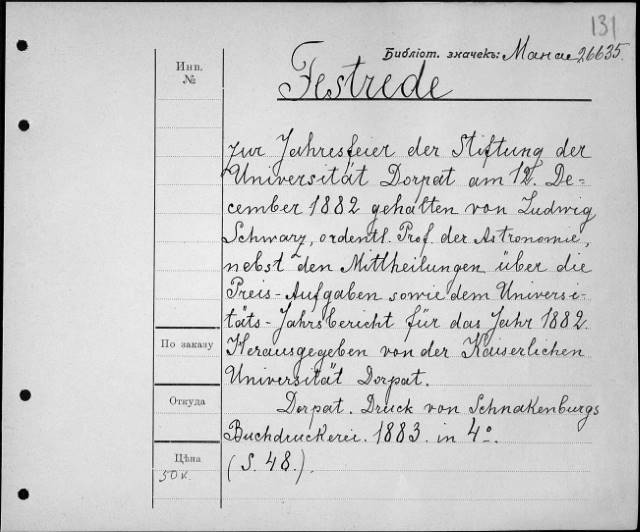 131
Библіот. значекъ: Мана 26635.
Инв.
№
Festrede
zur Jahresfeier der Stiftung der
Universität Dorpat am 12. De=
cember 1882 gehalten von Ludwig
Schwarz, ordentl. Prof. der Astronomie,
nebst den Mittheilungen über die
Preis-Aufgaben sowie dem Universi-
täts-Jahrsbericht für das Jahr 1882.
Herausgegeben von der Kaiserlichen
Universität Dorpat.
Dorpat. Druck von Schnakenburgs
Buchdruckerei. 1883. in 4º.
(S. 48.)
По заказу
Откуда
Цѣна
50 к.